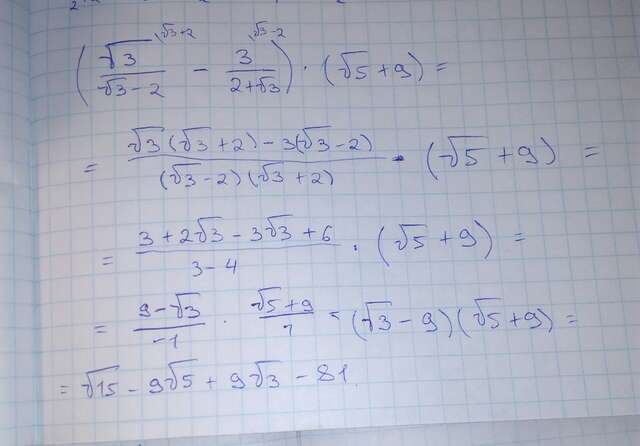 (√3/(√3-2) ^√3+2 - 3/(2+√3) ^√3-2) · (√5+9) =
= (√3(√3+2)-3(√3-2))/((√3-2)(√3+2)) · (√5+9) =
= (3+2√3-3√3+6)/(3-4) · (√5+9) =
= (9-√3)/(-1) · (√5+9)/1 = (√3-9)(√5+9) =
= √15 - 9√5 + 9√3 - 81.